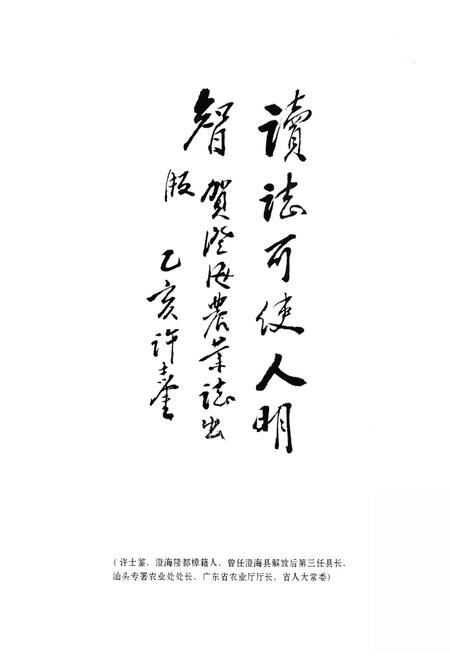 讀誌可使人明
智
賀澄海農業誌出
版
乙亥许士鋆
(许士鋆、澄海隆都樟籍人、曾任澄海县解放后第三任县长、
汕头专署农业处处长、广东省农业厅厅长、省人大常委)